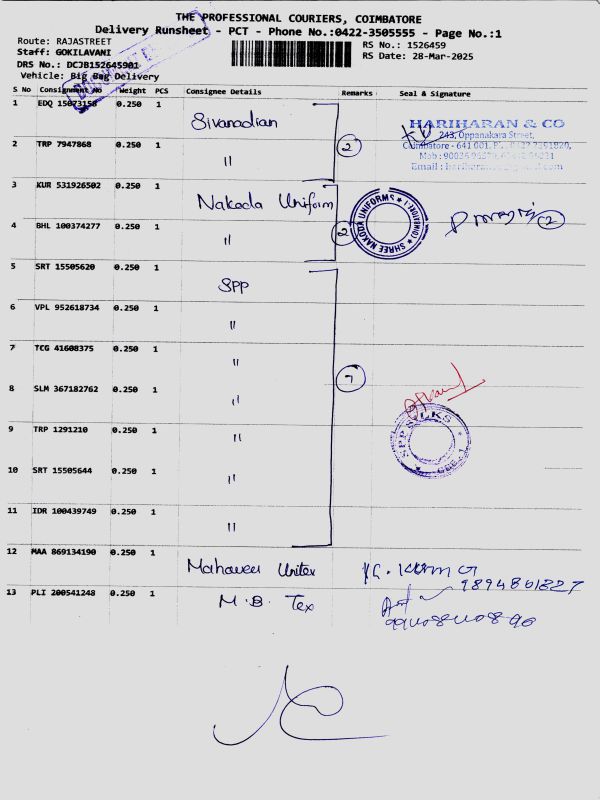 THE PROFESSIONAL COURIERS, COIMBATORE
Delivery Runsheet - PCT - Phone No.:0422-3505555 - Page No.:1
Route: RAJASTREET
RS No.: 1526459
Staff: GOKILAVANI
RS Date: 28-Mar-2025
DRS No.: DCJB152645901
Vehicle: Big Bag Delivery
S No Consignment No Weight PCS Consignee Details Remarks Seal & Signature
1 EDQ 15073158 0.250 1 Sivanadian
HARIHARAN & CO
243, Oppanakara Street,
Coimbatore - 641 001.
2 TRP 7947868 0.250 1 〃 2
3 KUR 531926502 0.250 1 Nakoda Uniform
SHREE NAKODA UNIFORMS
4 BHL 100374277 0.250 1 〃 2 2
5 SRT 15505620 0.250 1 SPP
6 VPL 952618734 0.250 1 〃
7 TCG 41608375 0.250 1 〃 7
8 SLM 367182762 0.250 1 〃
SPP SILKS
9 TRP 1291210 0.250 1 〃
10 SRT 15505644 0.250 1 〃
11 IDR 100439749 0.250 1 〃
12 MAA 869134190 0.250 1 Mahaveer Unitex
9894861827
13 PLI 200541248 0.250 1 M.B. Tex